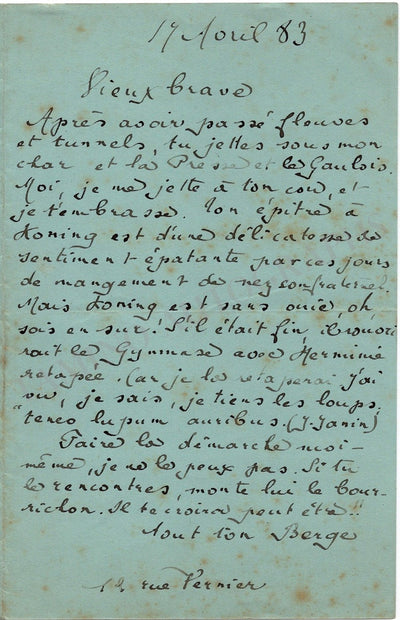 17 Avril 83
Vieux brave
Après avoir passé fleuves
et tunnels, tu jettes sous mon
char et la Presse et le Gaulois.
Moi, je me jette à ton cou, et
je t'embrasse. Ton épitre à
Koning est d'une délicatesse de
sentiment épatante par ces jours
de mangement de nez confraternel.
Mais Koning est sans ouïe, oh
sois en sur! S'il était fin, il rouvri
rait le Gymnase avec Herminie
retapée. Car je la retaperai J'ai
vu, je sais, je tiens les loups,
"teneo lupum auribus. (J. Janin)
Faire la démarche moi-
même, je ne le peux pas. Si tu
le rencontres, monte lui le bour-
richon. Il te croira peut être!!
Tout ton Berge
12 rue Vernier